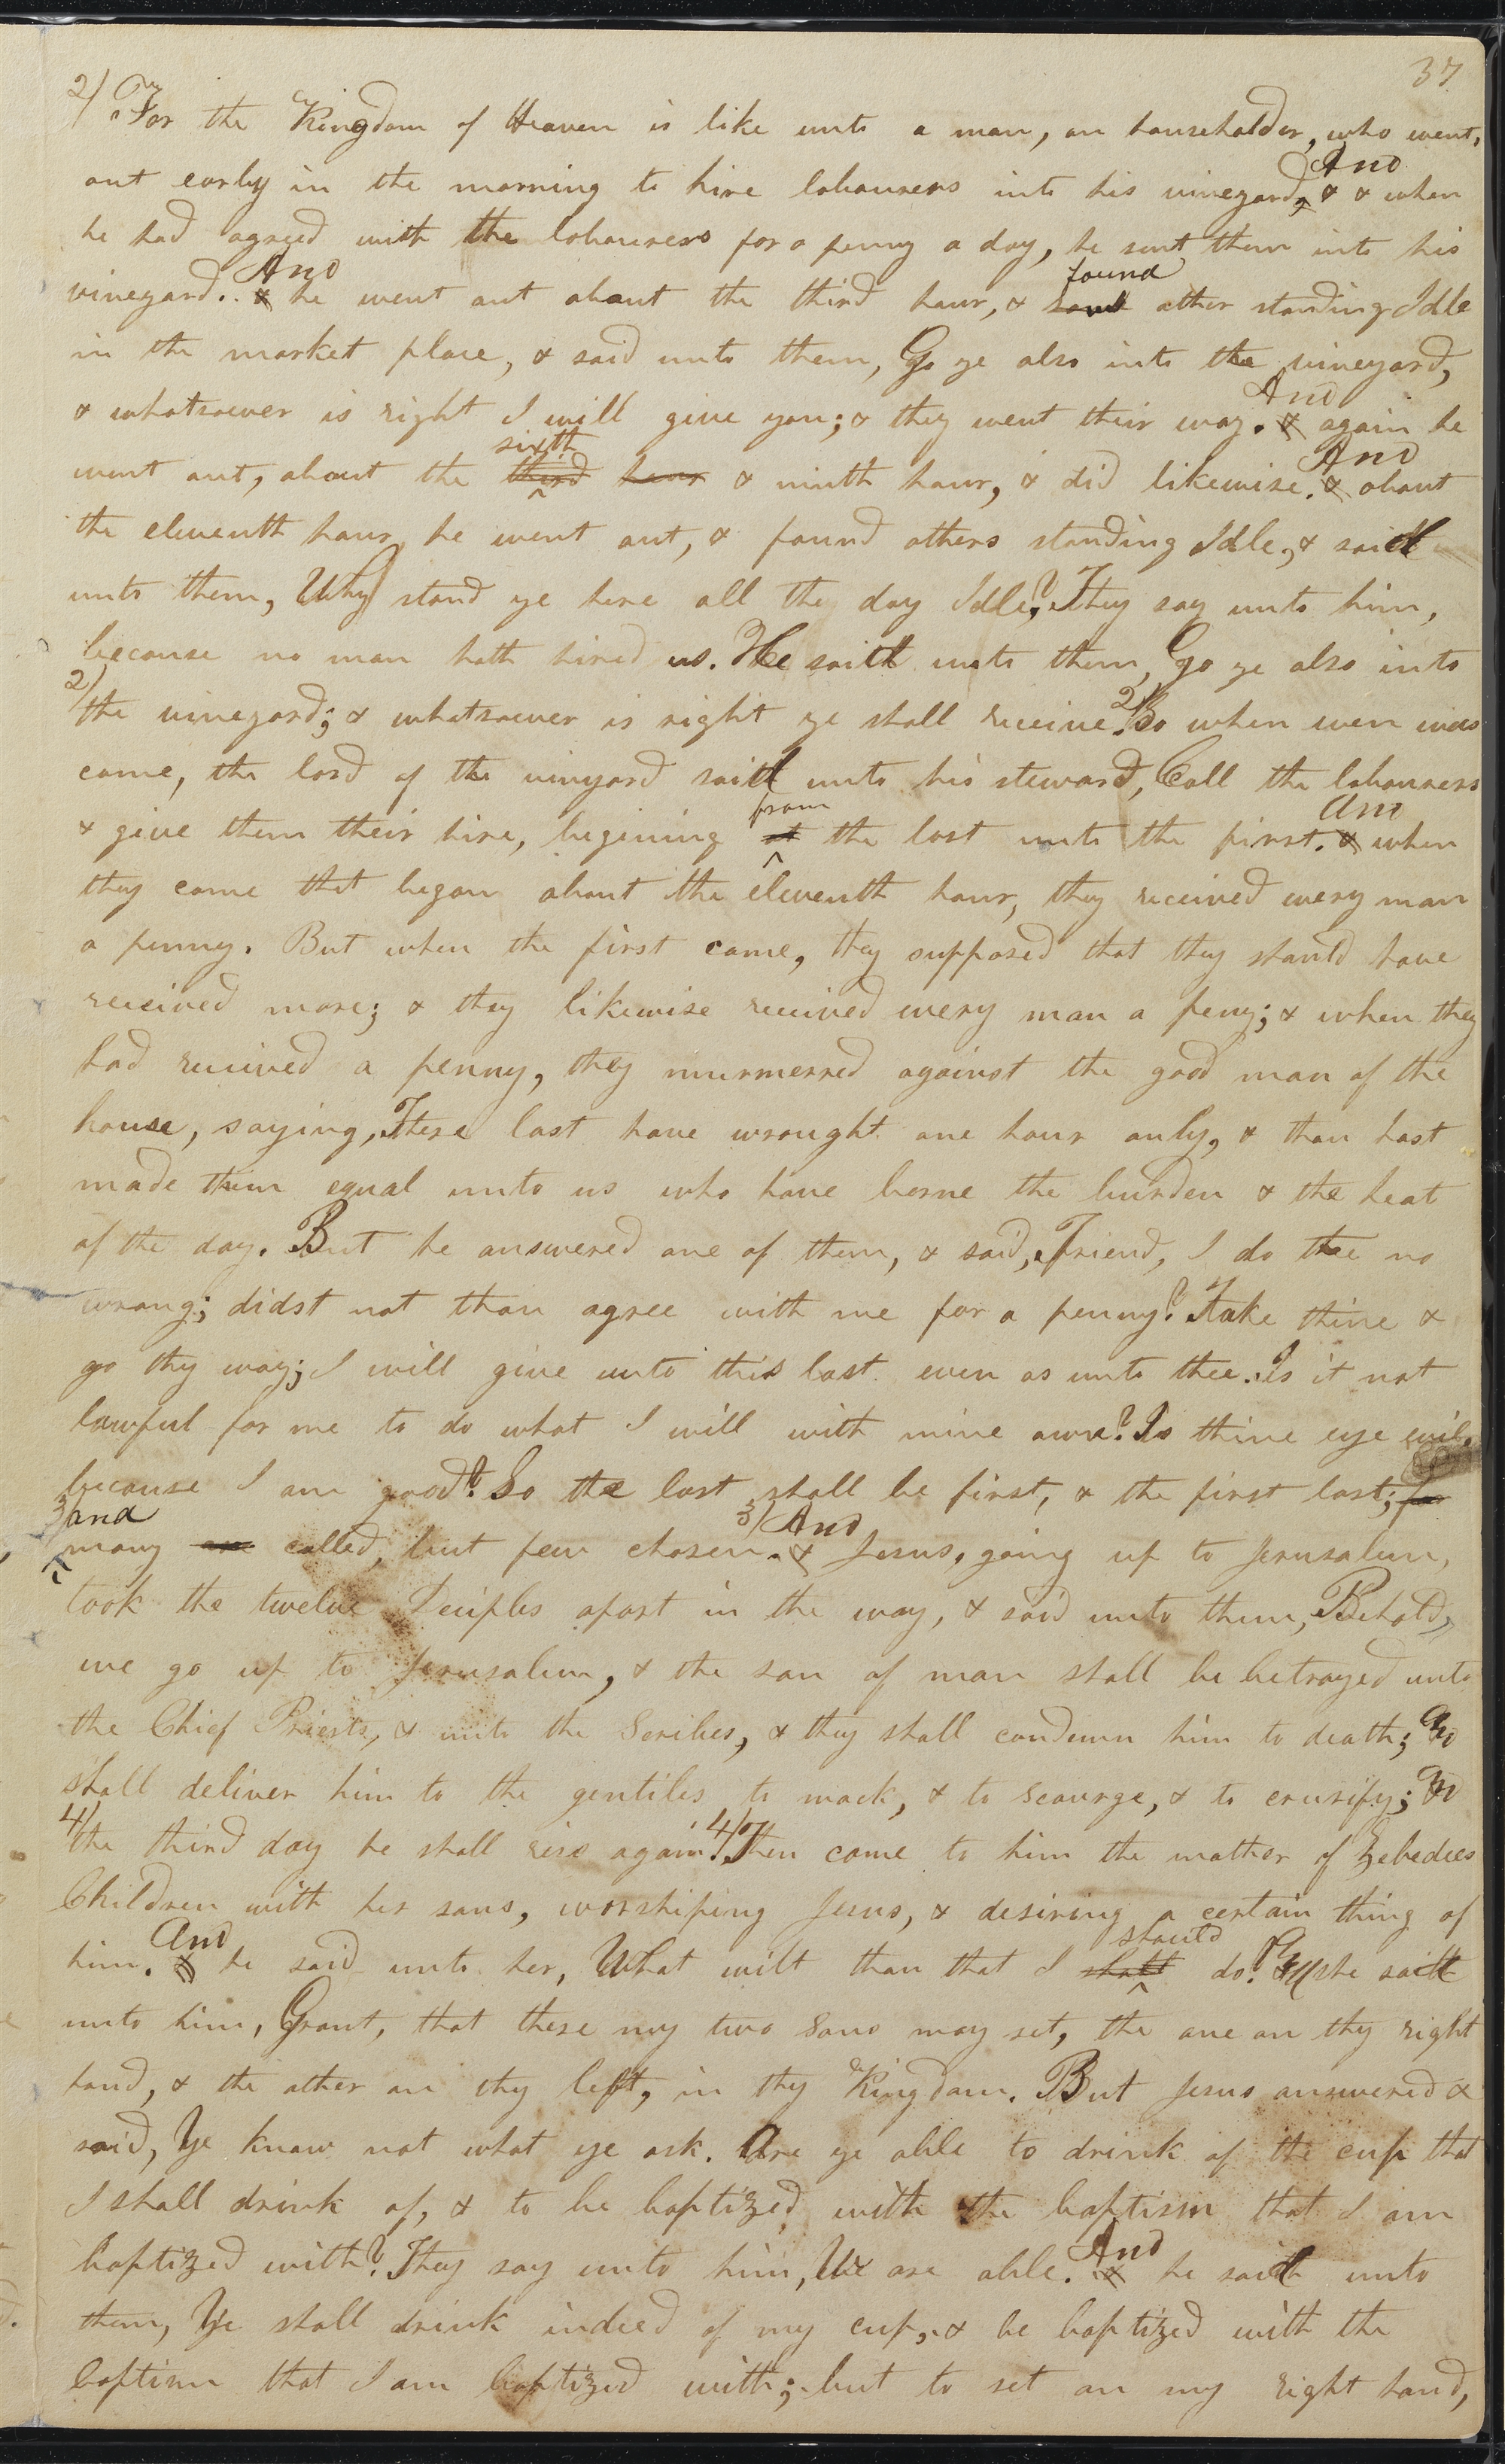 37
2/ For the Kingdom of Heaven is like unto a man, an householder, who went,
out early in the morning to hire labourers into his vineyard, And & & when
he had agreed with the labourers for a penny a day, he sent them into his
vineyard. And & he went out about the third hour, & found other standing Idle
in the market place, & said unto them, Go ye also into the vineyard,
& whatsoever is right I will give you; & they went their way. And & again he
went out, about the sixth third hour & ninth hour, & did likewise. And & about
the eleventh hour he went out, & found others standing Idle, & saith
unto them, Why stand ye here all the day Idle? They say unto him,
because no man hath hired us. He saith unto them, Go ye also into
2/ the vineyard; & whatsoever is right ye shall receive. 2/ So when even was
come, the lord of the vinyard saith unto his steward, Call the labourers
& give them their hire, begining from at the last unto the first. And & when
they came that began about the eleventh hour, they received every man
a penny. But when the first came, they supposed that they should have
received more; & they likewise received every man a peny; & when they
had received a penny, they murmerred against the good man of the
house, saying, These last have wrought one hour only, & thou hast
made them equal unto us who have borne the burden & the heat
of the day. But he answered one of them, & said, Friend, I do thee no
wrong; didst not thou agree with me for a penny? Take thine &
go thy way; I will give unto this last even as unto thee. Is it not
lawful for me to do what I will with mine own? Is thine eye evil,
because I am good? So the last shall be first, & the first last; for
3/ and many are called, but few chosen. 3/ And & Jesus, going up to Jerusalem,
took the twelve Deciples apart in the way, & said unto them, Behold,
we go up to Jerusalem, & the son of man shall be betrayed unto
the Chief Priests, & unto the Scribes, & they shall condemn him to death; And
shall deliver him to the gentiles to mock, & to scourge, & to crusify; And
4/ the third day he shall rise again. 4/ Then came to him the mother of Zebedees
Children with her sons, worshiping Jesus, & desiring a certain thing of
him. And & he said unto her, What wilt thou that I should shall do? And she saith
unto him, Grant, that these my two Sons may set, the one on thy right
hand, & the other on thy left, in thy Kingdom. But Jesus answered &
said, Ye know not what ye ask. Are ye able to drink of the cup that
I shall drink of, & to be baptized with the baptism that I am
baptized with? They say unto him, We are able. And & he saith unto
them, Ye shall drink indeed of my cup, & be baptized with the
baptism that I am baptized with; but to set on my right hand,